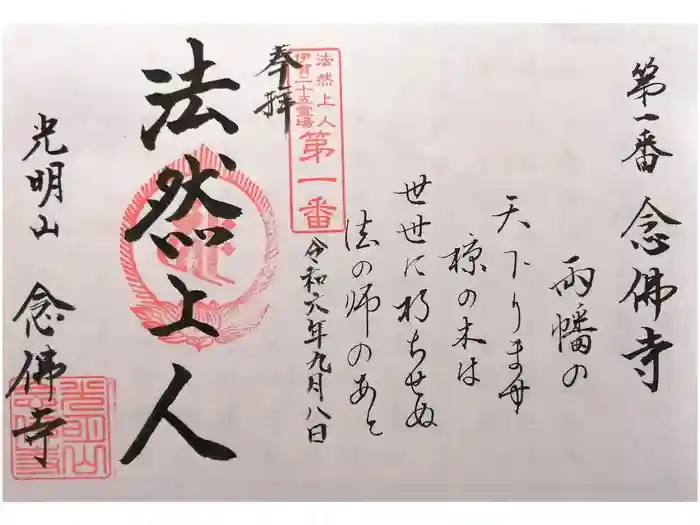 第一番 念佛寺
両幡の
天下りませ
椋の木は
世世に朽ちせぬ
法の師のあと
法然上人
伊賀二十五霊場
第一番
奉拝
令和六年九月八日
法然上人
光明山 念佛寺